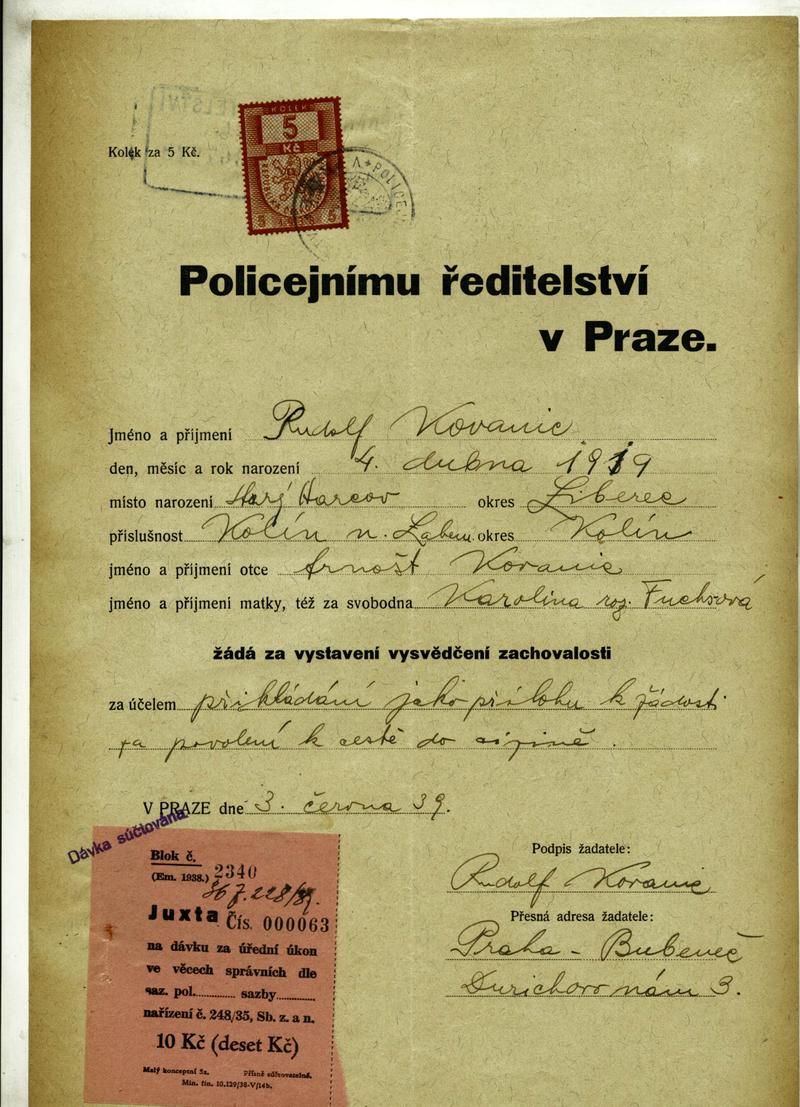 KOLEK
5
Kč
5 1938 5
Kolek za 5 Kč.
POLICEJ
Policejnímu ředitelství
v Praze.
Jméno a příjmení Rudolf Kovanic
den, měsíc a rok narození 4. dubna 1919
místo narození Starý Harcov okres Liberec
příslušnost Kolín n. Labem okres Kolín
jméno a příjmení otce Arnošt Kovanic
jméno a příjmení matky, též za svobodna Karolina roz. Fuchsová
žádá za vystavení vysvědčení zachovalosti
za účelem přikládání jako přílohu k žádosti
za povolení k cestě do cizině.
V PRAZE dne 3. června 39.
Dávka súčtována.
Blok č.
(Em. 1938.) 2340
Juxta Čís. 000063
na dávku za úřední úkon
ve věcech správních dle
saz. pol. sazby
nařízení č. 248/35, Sb. z. a n.
10 Kč (deset Kč)
Malý koncepní 5a. Přísně súčtovatelné.
Min. fin. 10.129/38-V/14b.
Podpis žadatele:
Rudolf Kovanic
Přesná adresa žadatele:
Praha - Bubeneč
Durichovo nám 3.